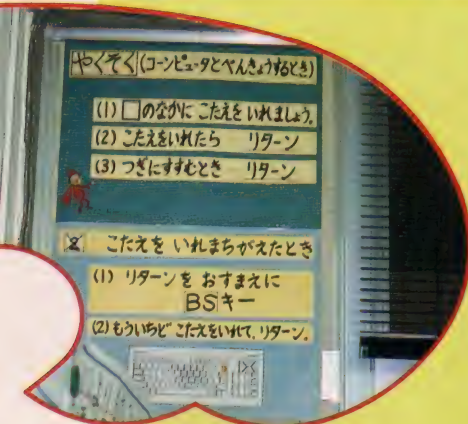 やくそく(コーンピュータとべんきょうするとき)
(1) □のなかに こたえを いれましょう。
(2) こたえをいれたら リターン
(3) つぎにすすむとき リターン
こたえを いれまちがえたとき
(1) リターンを おすまえに
BSキー
(2) もういちど こたえをいれて、リターン。